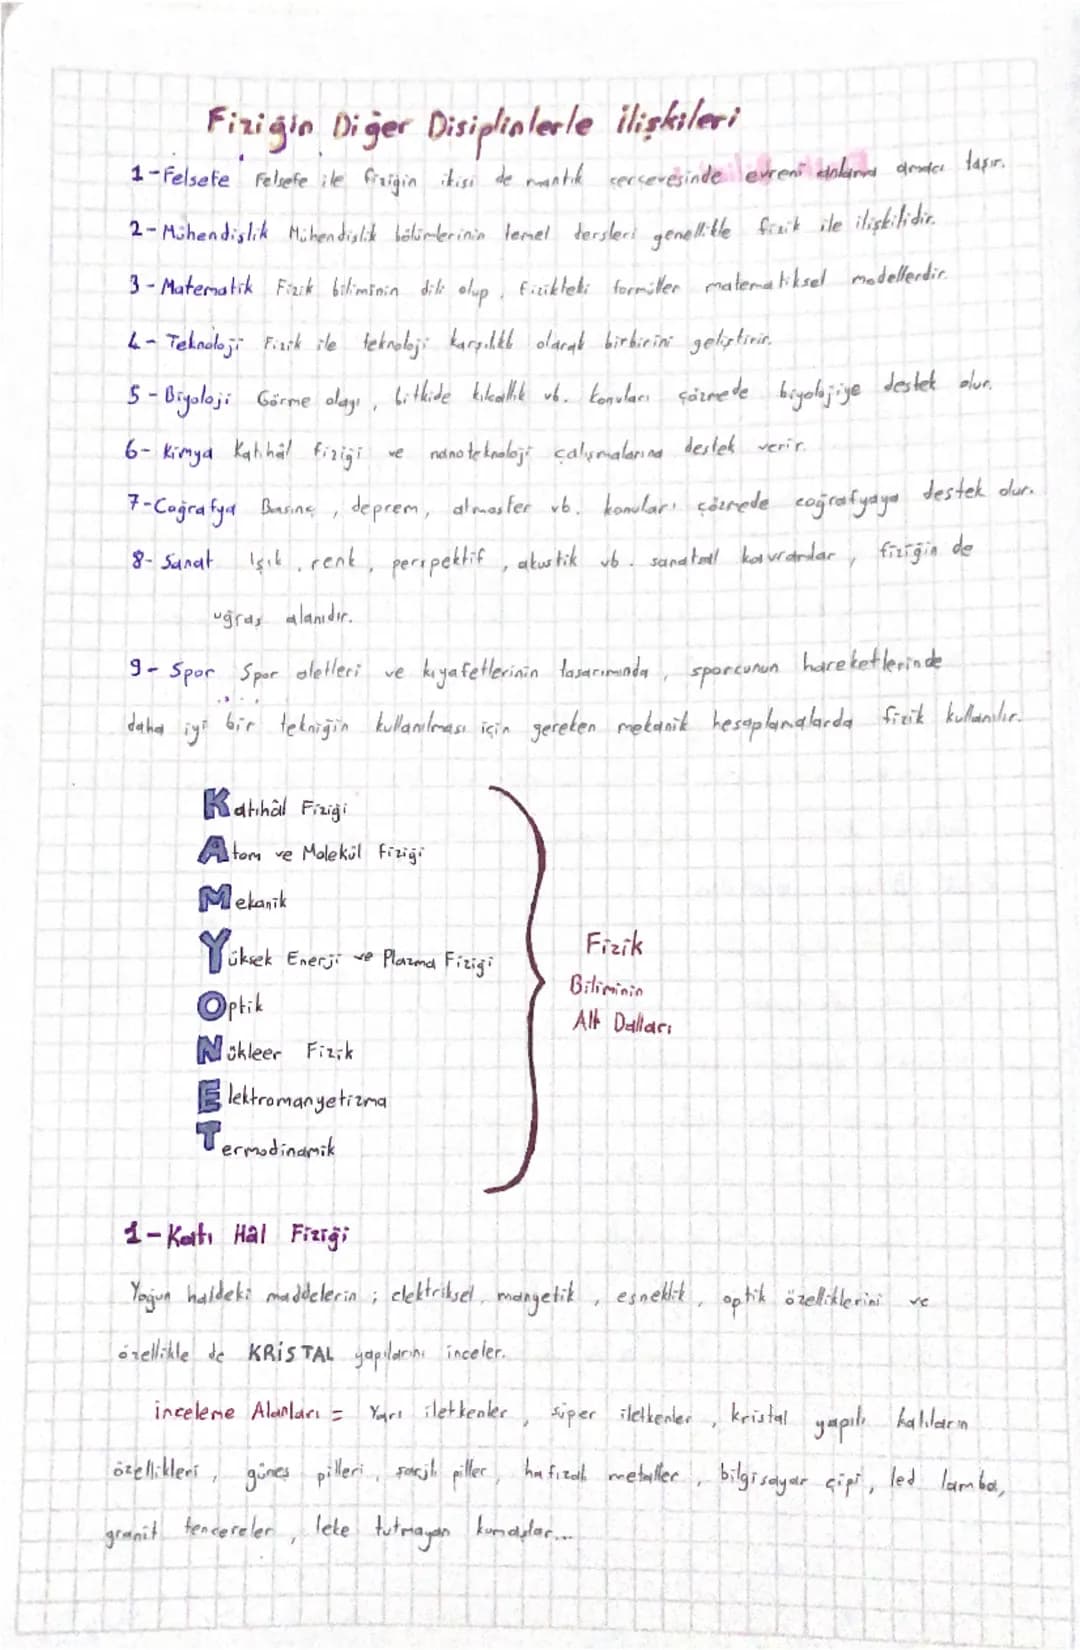 Fiziğin Diğer Disiplinlerle ilişkileri
1-Felsefe Felsefe ile fiziğin ikisi de mantık çerçevesinde evreni anlama amacı taşır.
2-Mühendislik Mühendislik bölümlerinin temel dersleri genellikle fizik ile ilişkilidir.
3-Matematik Fizik biliminin dili olup, fizikteki formüller matematiksel modellerdir.
4-Teknoloji Fizik ile teknoloji karşılıklı olarak birbirini geliştirir.
5-Biyoloji Görme olayı, bitkide kılcallık vb. konuları çözmede biyolojiye destek olur.
6-Kimya Katıhâl fiziği ve nanoteknoloji çalışmalarına destek verir.
7-Coğrafya Basınç, deprem, atmosfer vb. konuları çözmede coğrafyaya destek olur.
8-Sanat Işık, renk, perspektif, akustik vb. sanatsal kavramlar, fiziğin de
uğraş alanıdır.
9-Spor Spor aletleri ve kıyafetlerinin tasarımında, sporcunun hareketlerinde
daha iyi bir tekniğin kullanılması için gereken mekanik hesaplamalarda fizik kullanılır.
Katıhâl Fiziği
Atom ve Molekül fiziği
Mekanik
Yüksek Enerji ve Plazma Fiziği
Optik
Nükleer Fizik
Elektromanyetizma
Termodinamik
Fizik
Biliminin
Alt Dalları
1-Katı Hâl Fiziği
Yoğun haldeki maddelerin; elektriksel, manyetik, esneklik, optik özelliklerini ve
özellikle de KRİSTAL yapılarını inceler.
inceleme Alanları = Yarı iletkenler, süper iletkenler, kristal yapılı katıların
özellikleri, güneş pilleri, şarjlı piller, hafızalı metaller, bilgisayar çipi, led lamba,
granit tencereler, leke tutmayan kumaşlar...